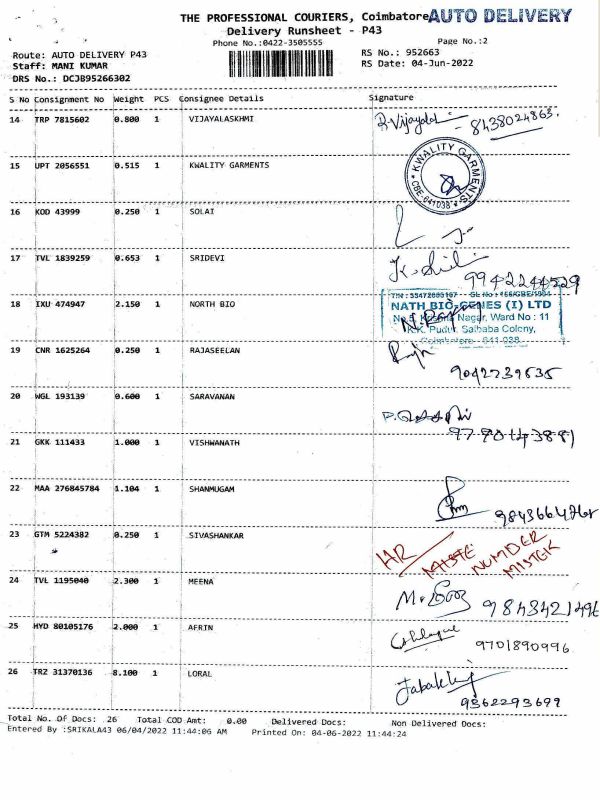 THE PROFESSIONAL COURIERS, Coimbatore AUTO DELIVERY
Delivery Runsheet - P43
Phone No.:0422-3505555 Page No.:2
Route: AUTO DELIVERY P43 RS No.: 952663
Staff: MANI KUMAR RS Date: 04-Jun-2022
DRS No.: DCJB95266302
S No Consignment No Weight PCS Consignee Details Signature
14 TRP 7815602 0.800 1 VIJAYALASKHMI R.Vijayal - 8438024863.
15 UPT 2056551 0.515 1 KWALITY GARMENTS
KWALITY GARMENTS
CBE-641038
16 KOD 43999 0.250 1 SOLAI
17 TVL 1839259 0.653 1 SRIDEVI
9942244529
18 IXU 474947 2.150 1 NORTH BIO
NATH BIO-GENES (I) LTD
Nagar, Ward No : 11
K.K. Pudur, Saibaba Colony,
Coimbatore - 641 038
19 CNR 1625264 0.250 1 RAJASEELAN
9042739535
20 WGL 193139 0.600 1 SARAVANAN
21 GKK 111433 1.000 1 VISHWANATH
22 MAA 276845784 1.104 1 SHANMUGAM
23 GTM 5224382 0.250 1 SIVASHANKAR
24 TVL 1195040 2.300 1 MEENA
9843421496
25 HYD 80105176 2.000 1 AFRIN
9701890996
26 TRZ 31370136 8.100 1 LORAL
9362293699
Total No. Of Docs: 26 Total COD Amt: 0.00 Delivered Docs: Non Delivered Docs:
Entered By :SRIKALA43 06/04/2022 11:44:06 AM Printed On: 04-06-2022 11:44:24